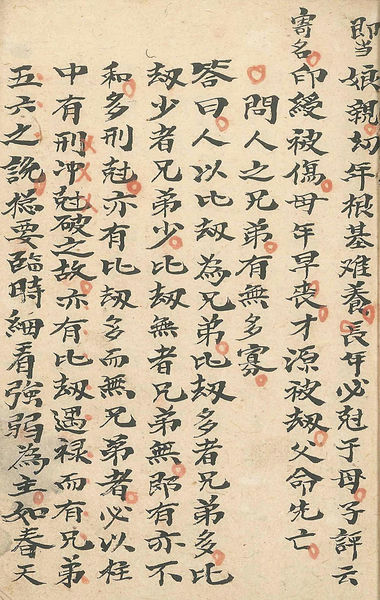 即当娘親幼年根基难養長年必尅于母子評云
寄名印綬被傷母年早丧才源被刼父命先亡
問人之兄弟有無多寡
答曰人以比刼為兄弟比刼多者兄弟多比
刼少者兄弟少比刼無者兄弟無即有亦不
和多刑尅亦有比刼多而無兄弟者必以柱
中有刑冲尅破之故亦有比刼遇禄而有兄弟
五六之說揔要臨時細看強弱為主如春天